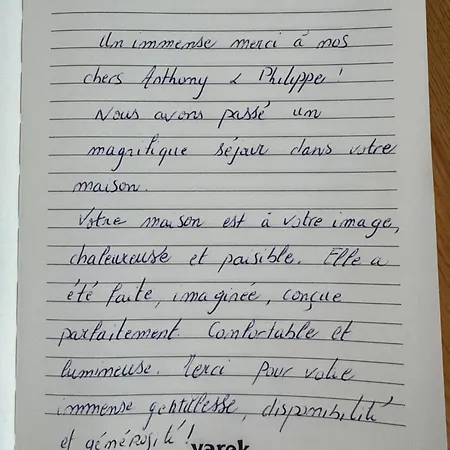 Un immense merci à nos
chers Anthony & Philippe !
Nous avons passé un
magnifique séjour dans votre
maison.
Votre maison est à votre image,
chaleureuse et paisible. Elle a
été faite, imaginée, conçue
parfaitement. Confortable et
lumineuse. Merci pour votre
immense gentillesse, disponibilité
et générosité !
varek